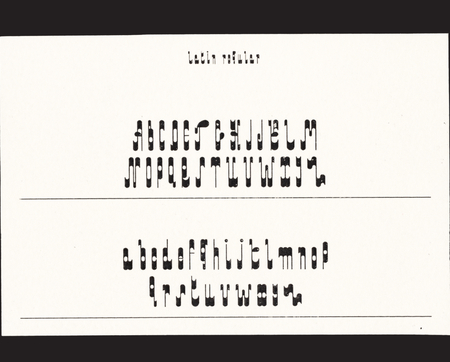 latin regular
ABCDEFGHIJKLM
NOPQRSTUVWXYZ
abcdefghijklmnop
qrstuvwxyz